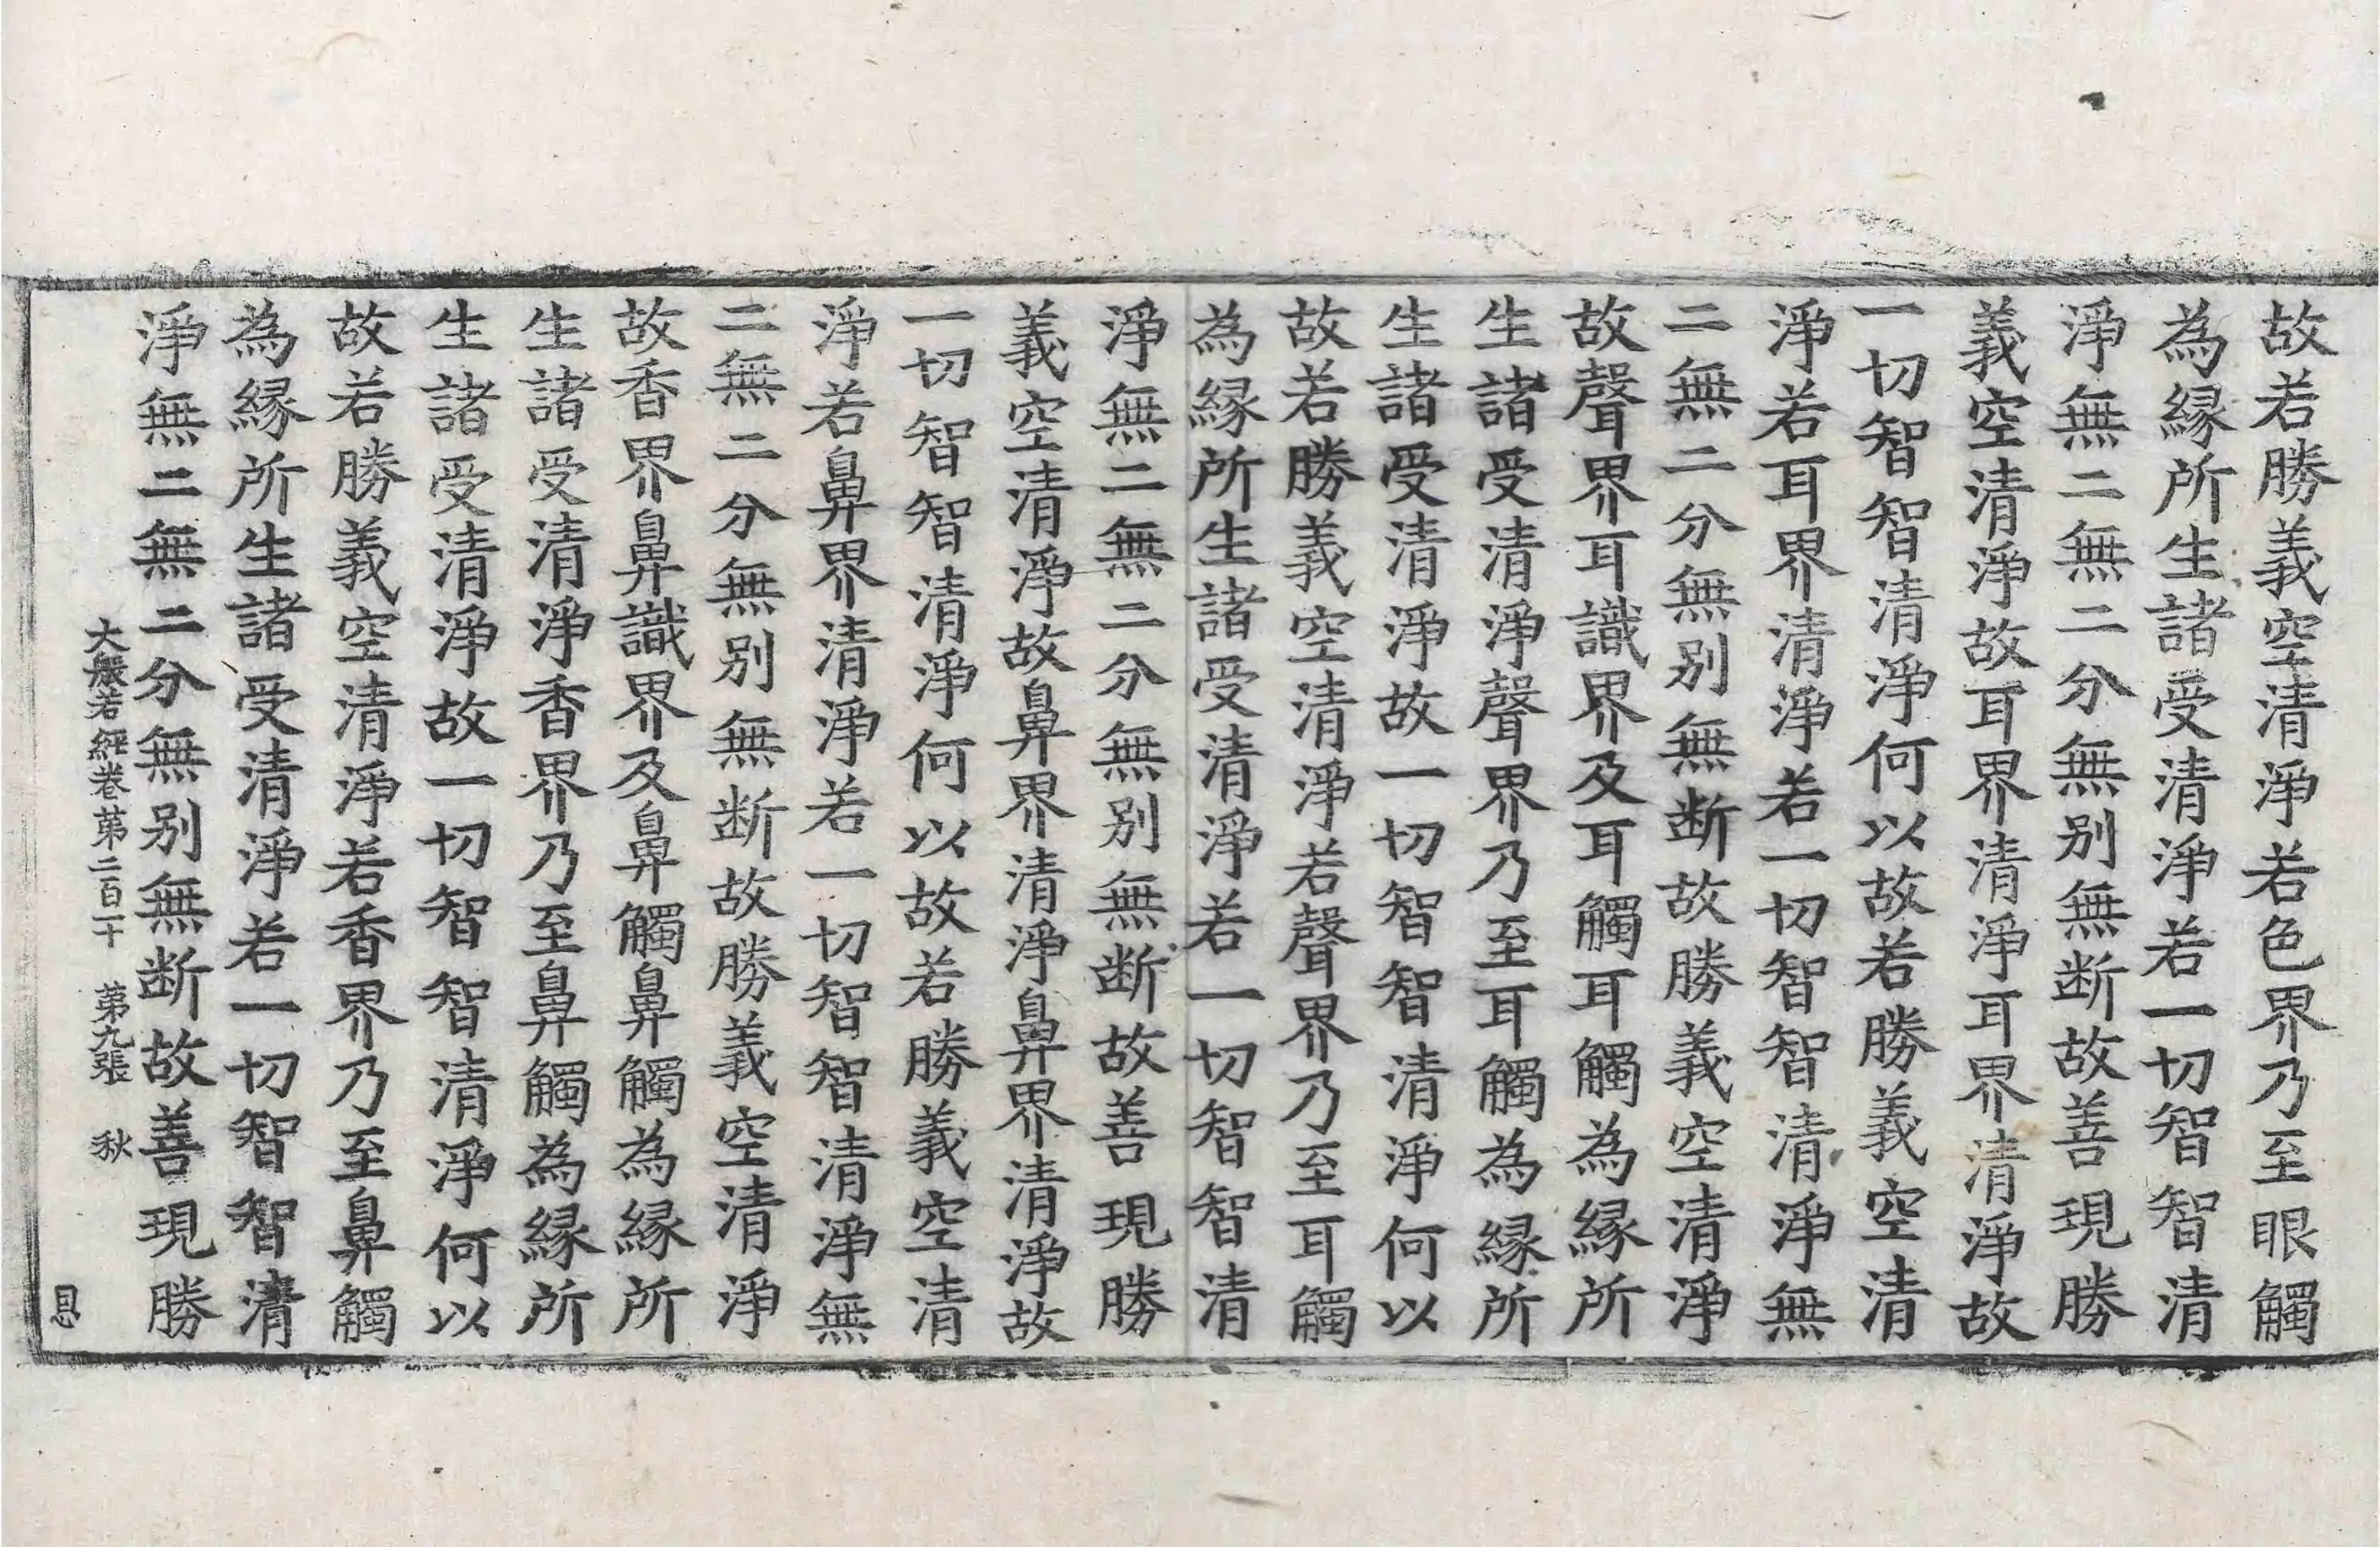 故若勝義空清淨若色界乃至眼觸
為縁所生諸受清淨若一切智智清
淨無二無二分無别無断故善現勝
義空清淨故耳界清淨耳界清淨故
一切智智清淨何以故若勝義空清
淨若耳界清淨若一切智智清淨無
二無二分無别無断故勝義空清淨
故聲界耳識界及耳觸耳觸為縁所
生諸受清淨聲界乃至耳觸為縁所
生諸受清淨故一切智智清淨何以
故若勝義空清淨若聲界乃至耳觸
為縁所生諸受清淨若一切智智清
淨無二無二分無别無断故善現勝
義空清淨故鼻界清淨鼻界清淨故
一切智智清淨何以故若勝義空清
淨若鼻界清淨若一切智智清淨無
二無二分無别無断故勝義空清淨
故香界鼻識界及鼻觸鼻觸為縁所
生諸受清淨香界乃至鼻觸為縁所
生諸受清淨故一切智智清淨何以
故若勝義空清淨若香界乃至鼻觸
為縁所生諸受清淨若一切智智清
淨無二無二分無别無断故善現勝
大般若經卷第二百一十 第九張 秋